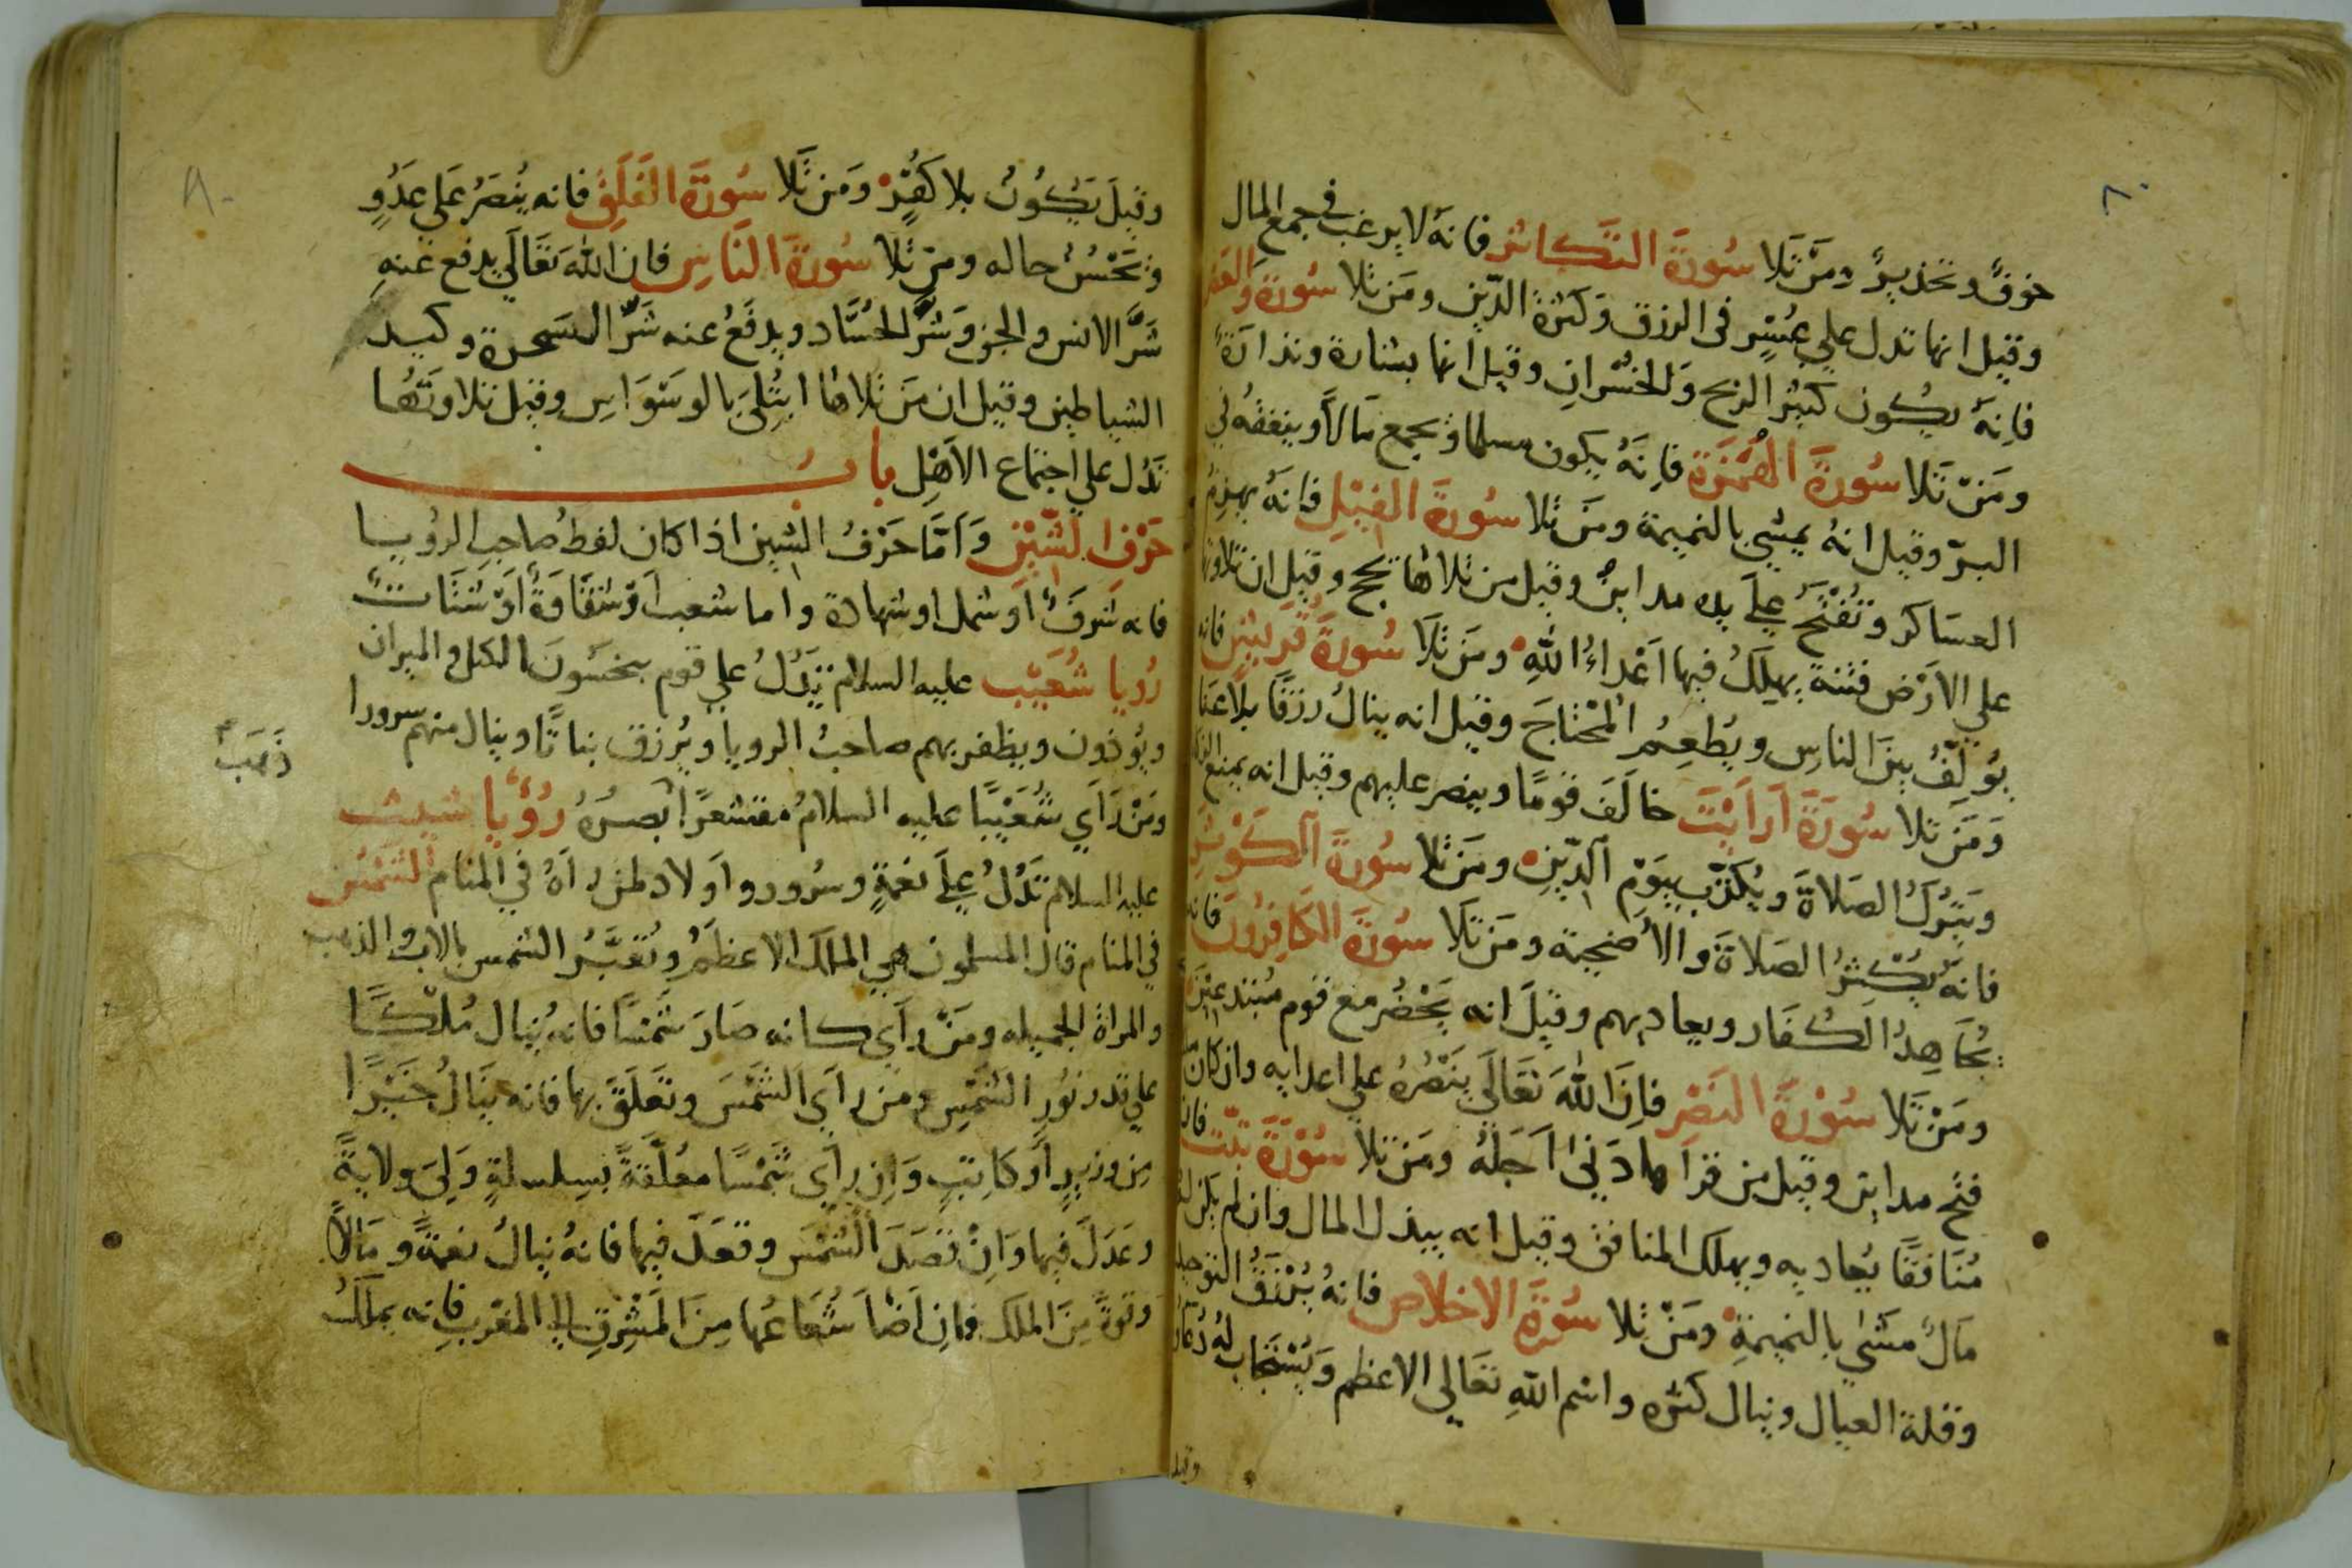 ٨٠
خوف وتحذير ومن تلا سورة التكاثر فانه لا يرغب في جمع المال
وقيل انها تدل علي عسر في الرزق وكثرة الدين ومن تلا سورة والعصر
فانه يكون كثير الربح والخسران وقيل انها بشارة ونذارة
ومن تلا سورة الهمزة فانه يكون مسلما ويجمع مالا وينفقه في
البر وقيل انه يمشي بالنميمة ومن تلا سورة الفيل فانه يهزم
العساكر وتفتح علي يده مداين وقيل من تلاها يحج وقيل ان تلاوتها
علي الارض فتنة يهلك فيها اعداء الله ومن تلا سورة قريش فانه
يولف بين الناس ويطعم المحتاج وقيل انه ينال رزقا بلا عنا
ومن تلا سورة ارايت خالف قوما وينصر عليهم وقيل انه يمنع الزكاة
ويترك الصلاة ويكذب بيوم الدين ومن تلا سورة الكوثر
فانه يكثر الصلاة والأضحية ومن تلا سورة الكافرون فانه
يجاهد الكفار ويعاديهم وقيل انه يحضر مع قوم مبتدعين
ومن تلا سورة النصر فان الله تعالي ينصره علي اعدايه وان كان
فتح مداين وقيل من قراها دني اجله ومن تلا سورة تبت فان
منافقا يعاديه ويهلك المنافق وقيل انه يبذل المال وان لم يكن له
مال مشي بالنميمة ومن تلا سورة الاخلاص فانه يرزق التوحيد
وقلة العيال وينال كثره واسم الله تعالي الاعظم ويستجاب له دعاه
وقيل
٨٠
وقيل يكون بلا كفر ومن تلا سورة الفلق فانه ينصر علي عدو
ويحسن حاله ومن تلا سورة الناس فان الله تعالي يدفع عنه
شر الانس والجن وشر الحساد ويدفع عنه شر السحرة وكيد
الشياطين وقيل ان من تلاها ابتلي بالوسواس وقيل تلاوتها
تدل علي اجتماع الاهل باب
حرف الشين واما حرف الشين اذا كان لفظ صاحب الرويا
فانه شرف او شمل او شهادة واما شعب او شقاوة أو شتات
رويا شعيب عليه السلام تدل علي قوم يبخسون الكل والميزان
ويوذون ويظفر بهم صاحب الرويا ويرزق بناتا وينال منهم سرورا
ذهب
ومن رأي شعيبا عليه السلام مقشعرا بصره رؤيا شيث
عليه السلام تدل علي نعمة وسرور واولاد لمن راه في المنام الشمس
في المنام قال المسلمون هي الملك الاعظم وتعبر الشمس بالاب والذهب
والمراة الجميله ومن رأي كانه صار شمسا فانه ينال ملكا
علي قدر نور الشمس ومن رأي الشمس وتعلق بها فانه ينال خيرا
من وزير أو كاتب وان رأي شمسا معلقة بسلسلة ولي ولاية
وعدل فيها وان قصد الشمس وقعد فيها فانه ينال نعمة ومالا
وقوة من الملك فان اضا شعاعها من المشرق الي المغرب فانه يملك